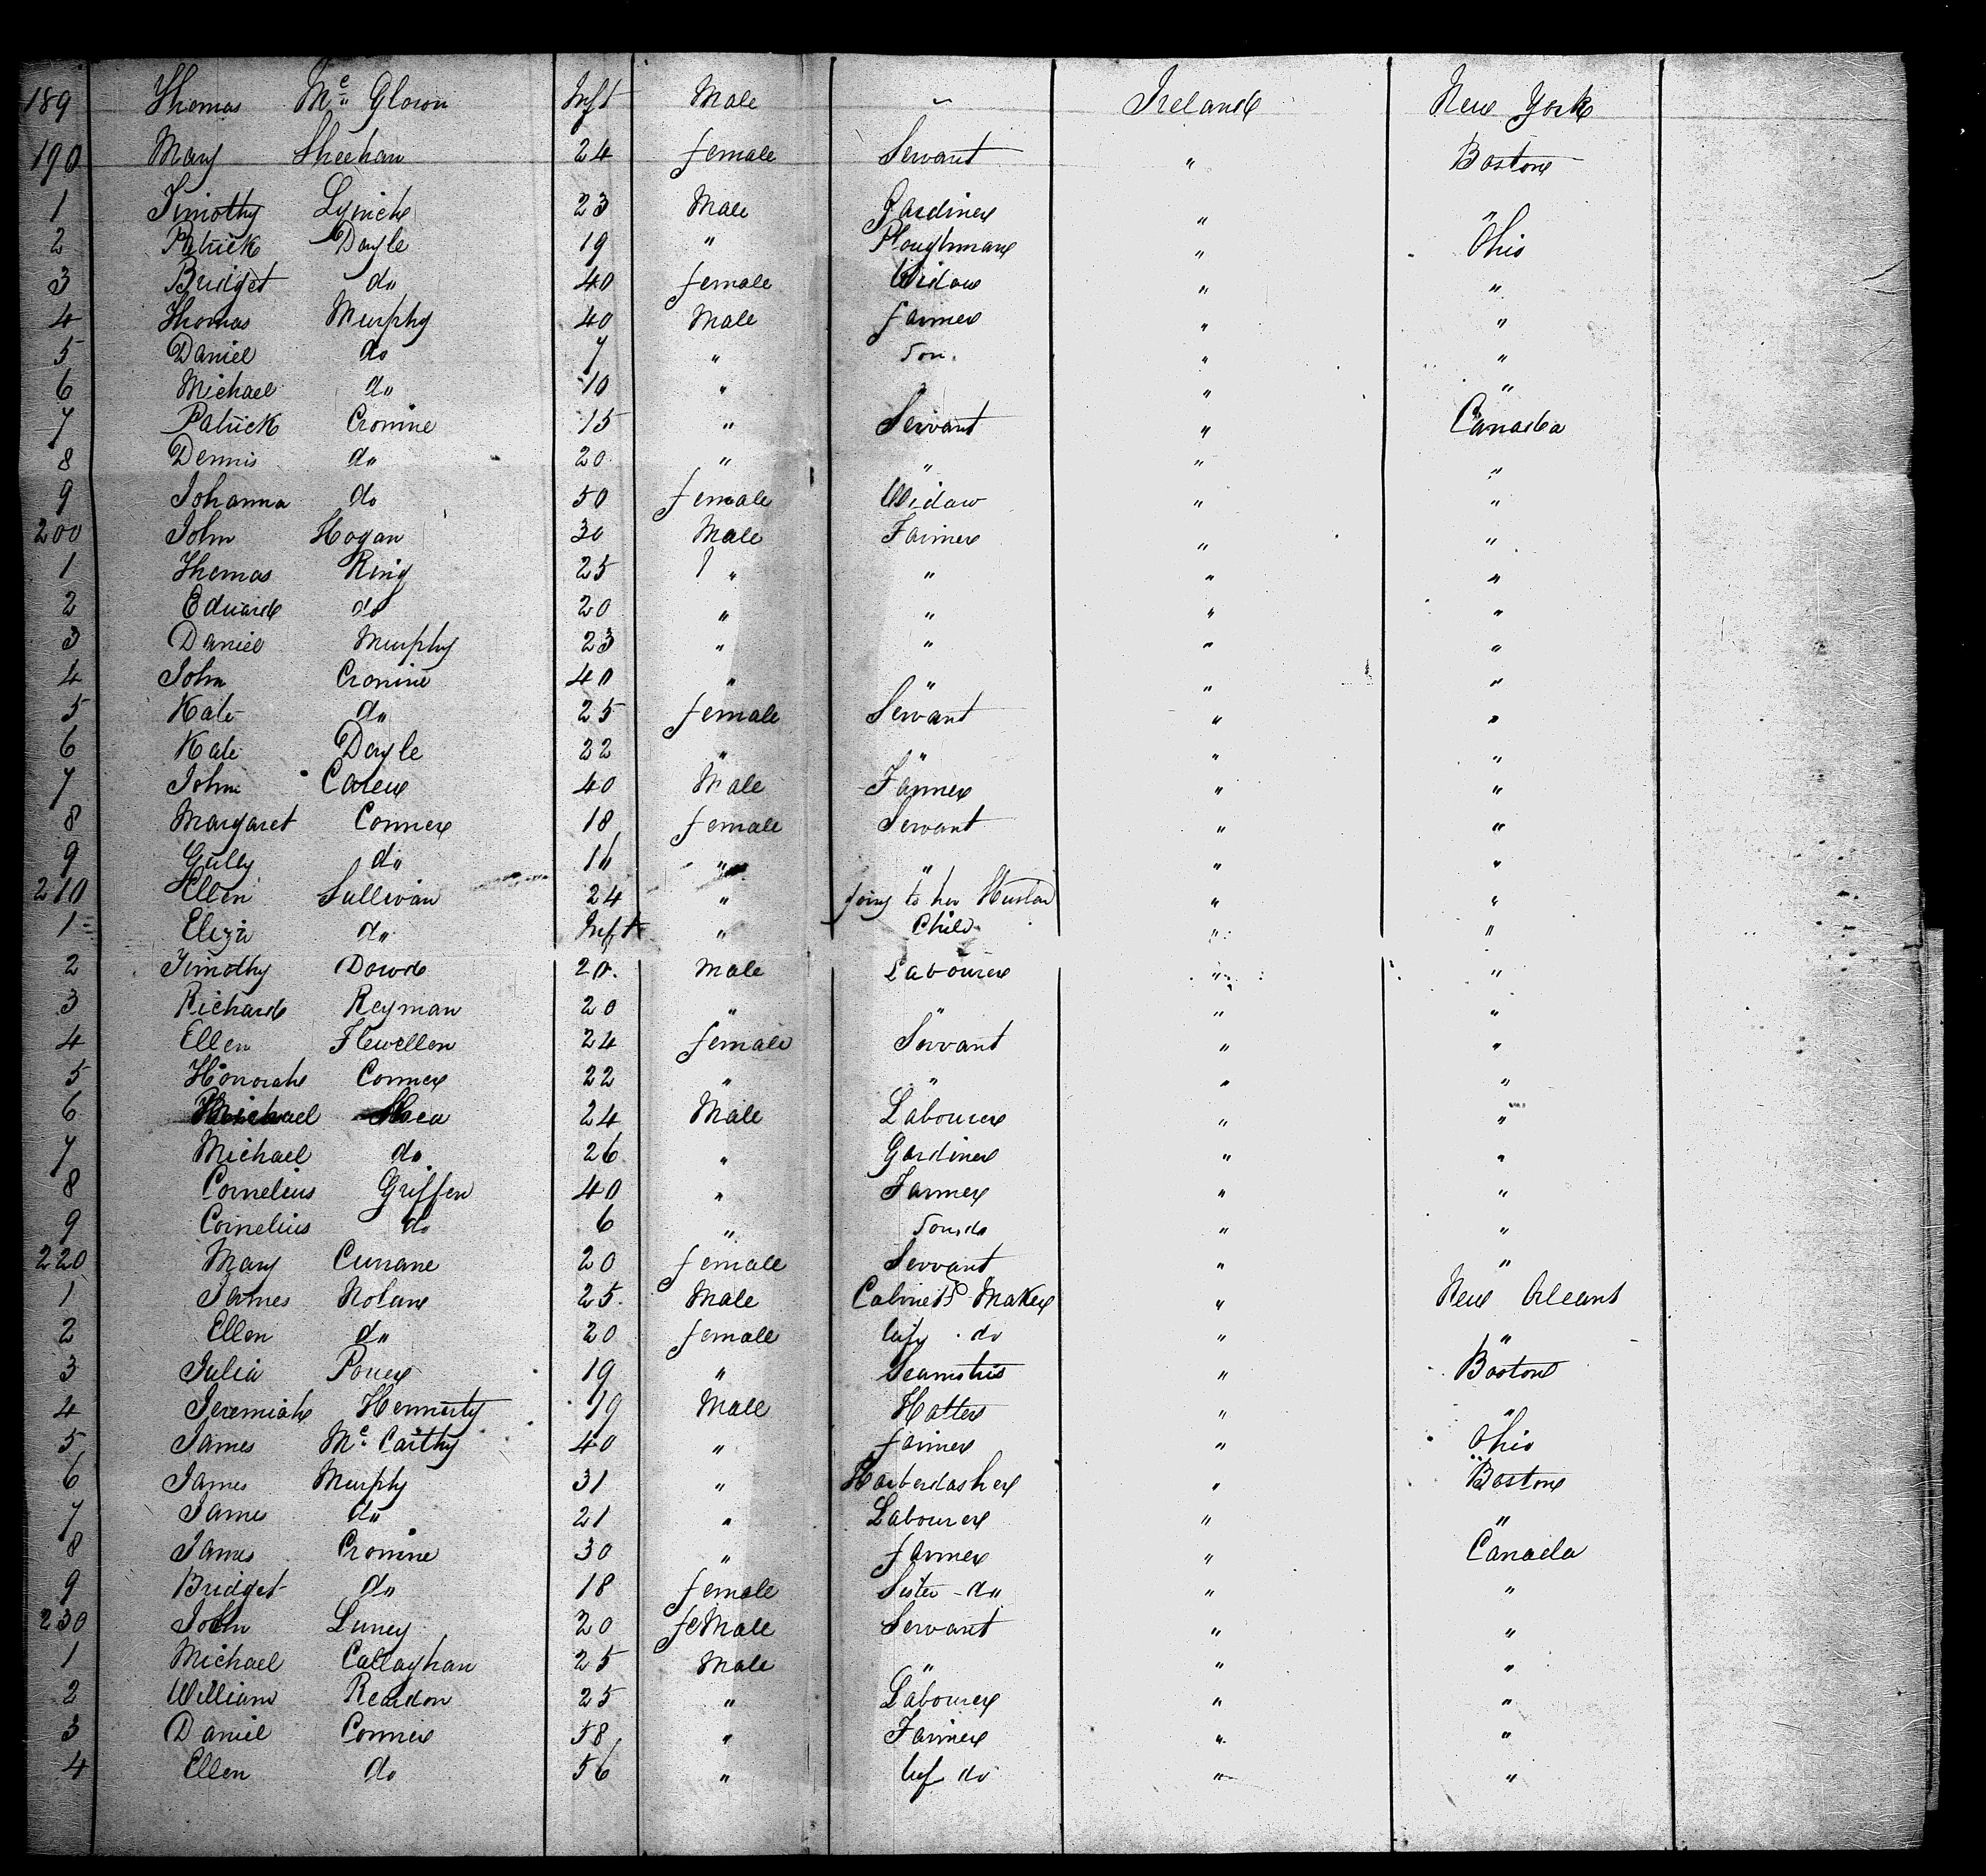 189 Thomas Mc Glown Inft Male " Ireland New York
190 Mary Sheehan 24 female Servant " Boston
1 Timothy Lynch 23 Male Gardiner " "
2 Patrick Doyle 19 " Ploughman " Ohio
3 Bridget do 40 female Widow " "
4 Thomas Murphy 40 Male farmer " "
5 Daniel do 7 " Son. " "
6 Michael do 10 " " "
7 Patrick Cronine 15 " Servant " Canada
8 Dennis do 20 " " " "
9 Johanna do 50 female Widow " "
200 John Hogan 30 Male Farmer " "
1 Thomas King 25 " " " "
2 Edward do 20 " " " "
3 Daniel Murphy 23 " " " "
4 John Cronine 40 " " " "
5 Kate do 25 female Servant " "
6 Kate Doyle 22 " " " "
7 John Carew 40 Male Farmer " "
8 Margaret Conner 18 female Servant " "
9 Gully do 16 " " " "
210 Ellen Sullivan 24 " going to her Husban " "
1 Eliza do Inft " Child " "
2 Timothy Dowd 20. Male Labourer " "
3 Richard Reyman 20 " " " "
4 Ellen Flewellen 24 female Servant " "
5 Honorah Conner 22 " " " "
6 Michael Shea 24 Male Labourer " "
7 Michael do 26 " Gardiner " "
8 Cornelius Griffen 40 " Farmer " "
9 Cornelius do 6 " Son do " "
220 Mary Currane 20 female Servant " "
1 James Nolan 25. Male Cabinet Maker " New Orleans
2 Ellen do 20 female Wife do " "
3 Julia Power 19 " Seamstris " Boston
4 Jeremiah Hennerty 19 Male Hatter " "
5 James Mc Carthy 40 " farmer " Ohio
6 James Murphy 31 " Harberdasher " Boston
7 James do 21 " Labourer " "
8 James Cronine 30 " farmer " Canada
9 Bridget do 18 female Sister do " "
230 John Luney 20 feMale Servant " "
1 Michael Callaghan 25 Male " " "
2 William Reardon 25 " Labourer " "
3 Daniel Conner 58 " Farmer " "
4 Ellen do 56 " Wif do " "